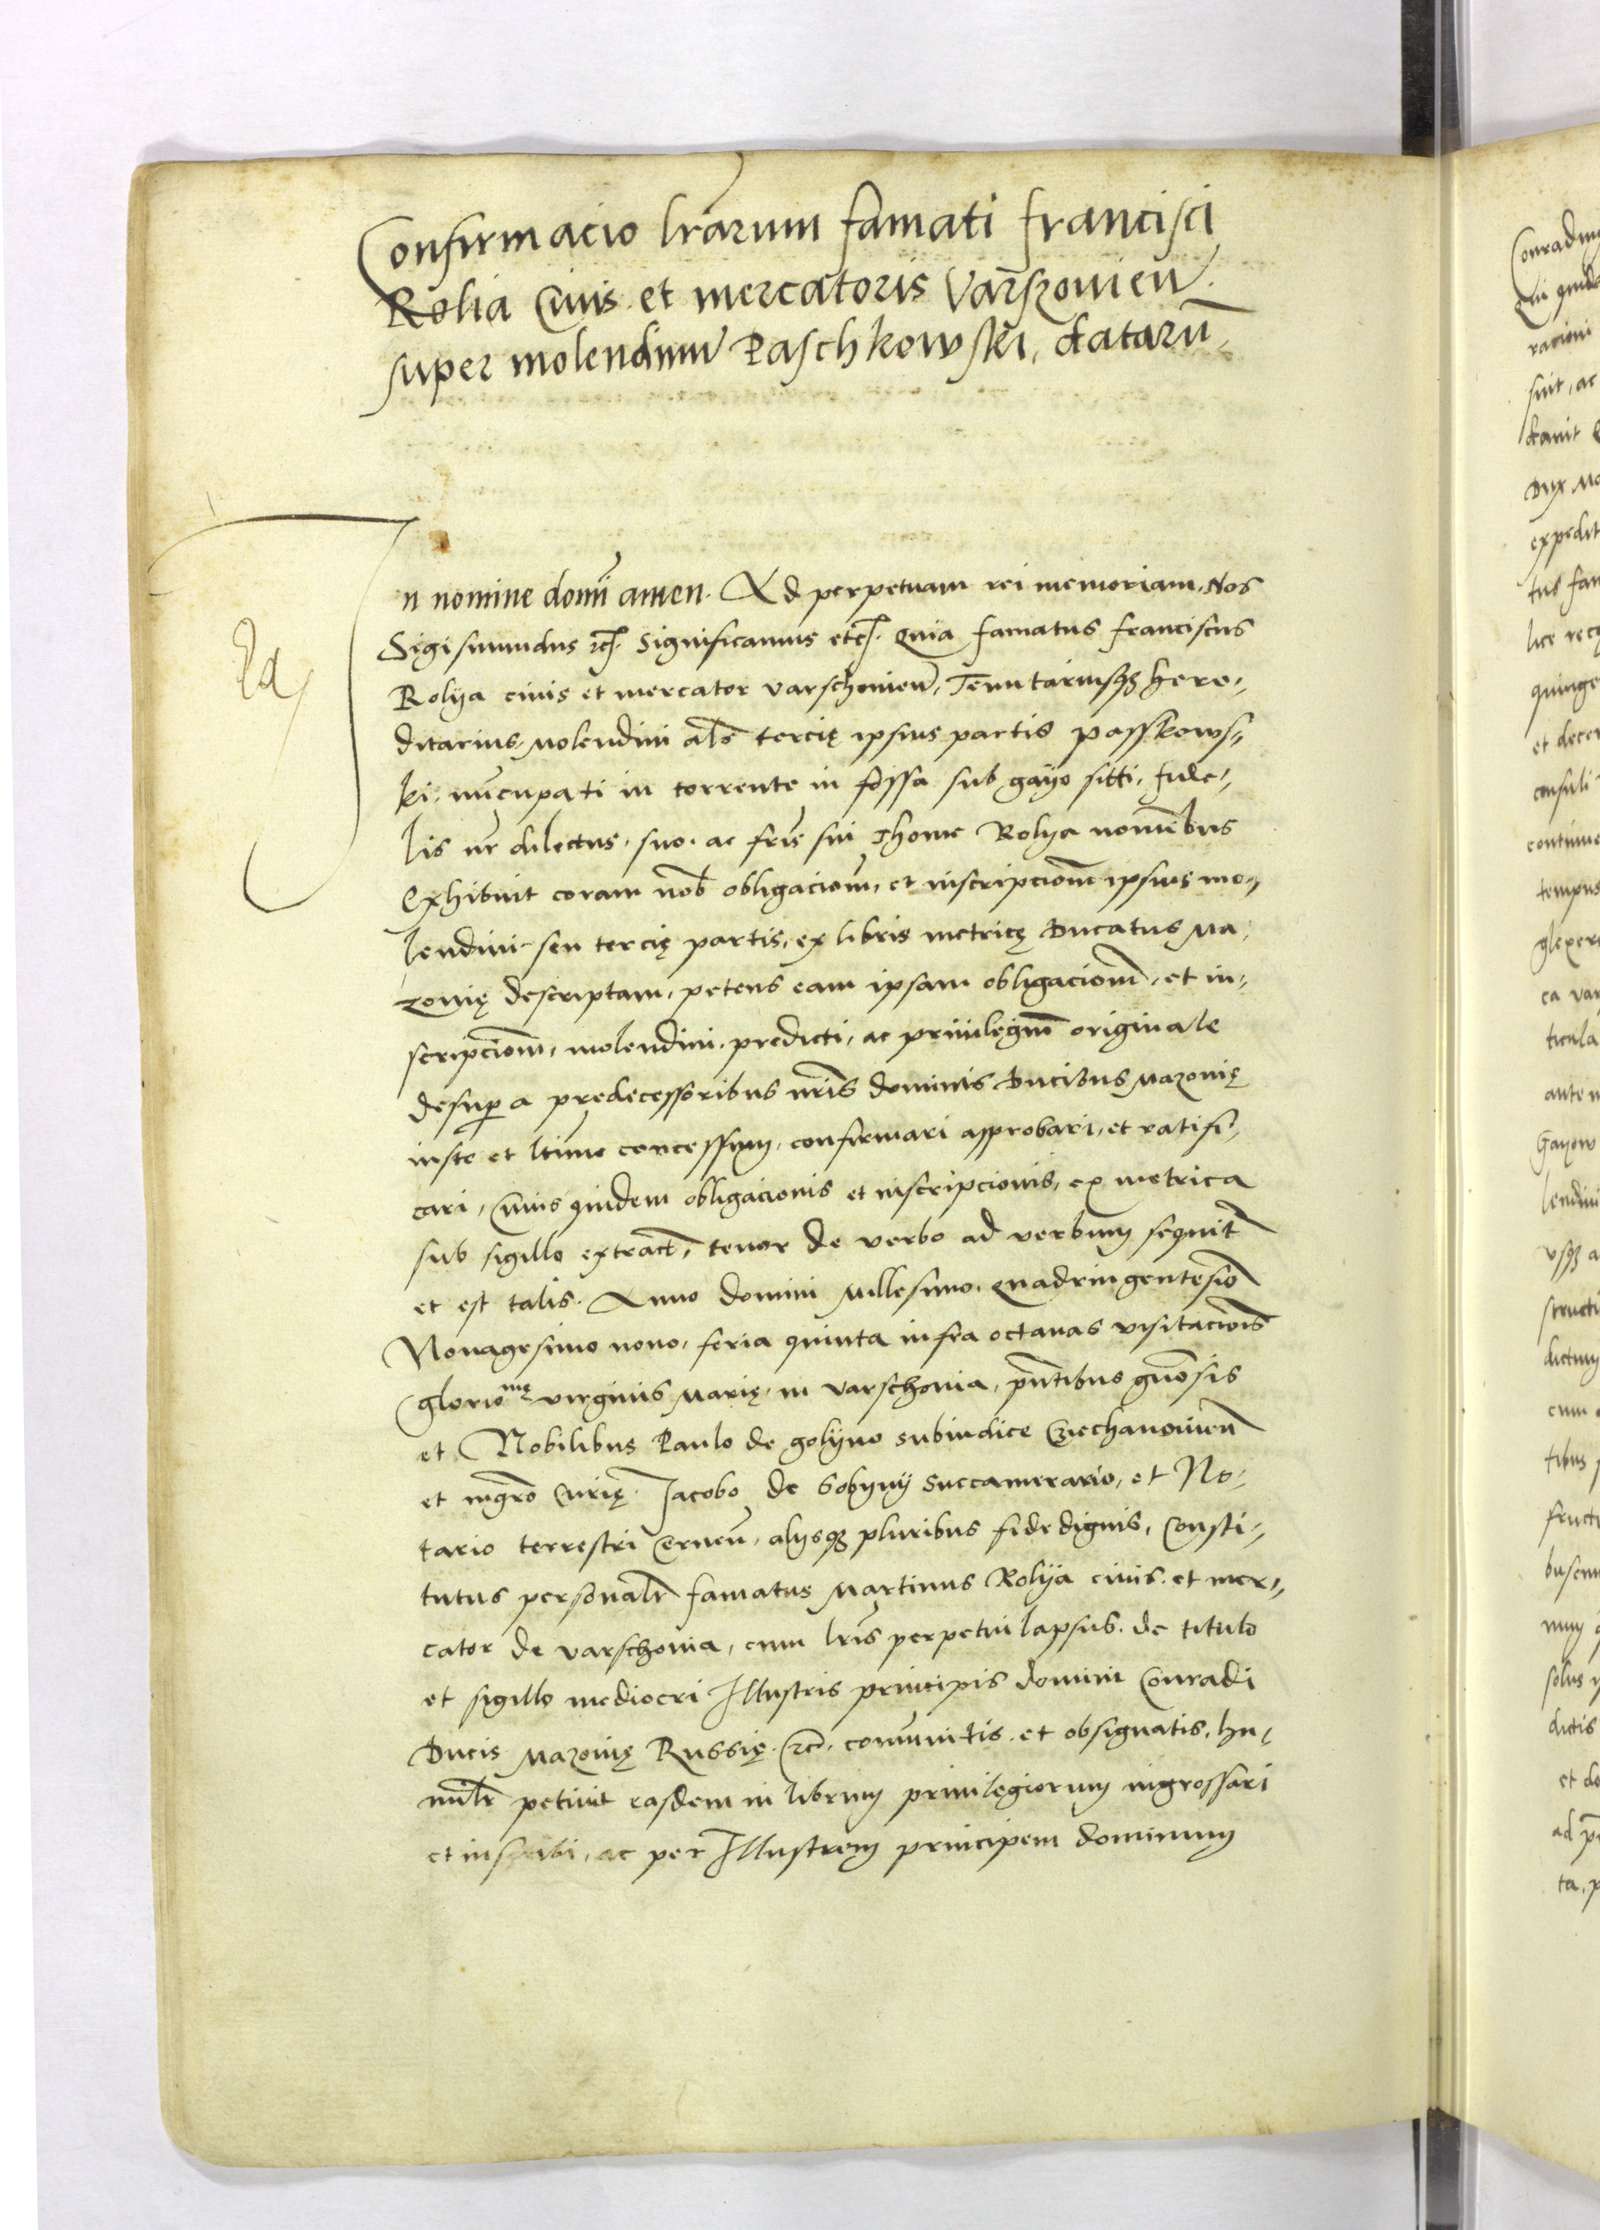 Confirmacio lrarum famati francisci
Rolia Civis et mercatoris Varszovien
super molendinu Paschkowski, dataru
In nomine domi amen. Ad perpetuam rei memoriam. Nos
Sigismundus etc. Significamus etc. Quia famatus franciscus
Rolya civis et mercator varschovien, Tenutariusqz here-
ditarius Molendini als tercię ipsius partis passkows-
ki, nucupati in torrente in fossa sub gayo sitti, fide-
lis nr dilectus, suo ac fris sui Thome Rolya nominibus
Exhibuit coram nob obligaciom, et inscripciom ipsius mo-
lendini seu tercię partis, ex libris metricę Ducatus Ma-
zovię descriptam, petens eam ipsam obligaciom, et in-
scripciom, molendini predicti, ac privilegiu originale
desup a predecessoribus nris dominis Ducibus Mazovię
iuste et ltime concessum, confirmari approbari, et ratifi-
cari, Cuius quidem obligacionis et inscripcionis, ex metrica
sub sigillo extract, tenor de verbo ad verbum sequit
et est talis. Anno domini Millesimo, Quadringentesio
Nonagesimo nono, feria quinta infra octavas visitacionis
Gloriomę virginis Marię, in Varschovia, pntibus gnosis
et Nobilibus Paulo de golyno subiudice Cziechanovien
et mgro Curię Iacobo de Sobyny Succamerario, et No-
tario terrestri Cernen, alysqz pluribus fidedignis, Consti-
tutus personalr famatus Martinus Rolya civis et mer-
cator de varschovia, cum lris perpetui lapsus de titulo
et sigillo mediocri Illustris principis domini Conradi
Ducis Mazovię Russię etc. comunitis et obsignatis, hu-
milr petivit easdem in librum privilegiorum ingrossari
et inscribi, ac per Illustrem principem dominum